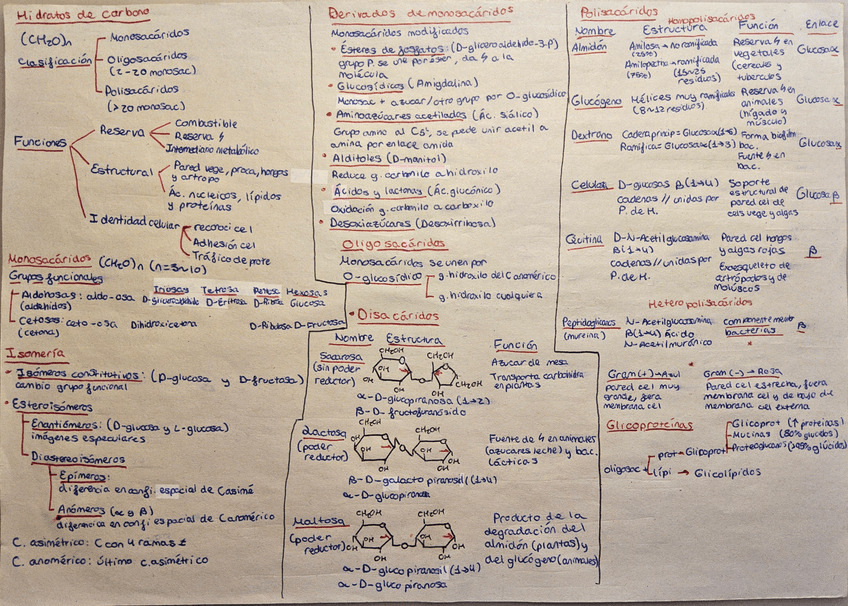 Hidratos de carbono
(CH2O)n
Clasificación
Monosacáridos
Oligosacáridos
(2-20 monosac)
Polisacáridos
(>20 monosac)
Funciones
Reserva
Combustible
Reserva ϟ
Intermediario metabólico
Estructural
Pared vege, proca, hongos
y artropo
Ác. nucleicos, lípidos
y proteínas
Identidad celular
recoroci cel
Adhesión cel
Tráfico de prote
Monosacáridos (CH2O)n (n=3~10)
Grupos funcionales
Triosas Tetrosa Petosa Hexosas
Aldohosas: aldo-osa D-Gliceroaldehido D-Eritosa D-Ribosa Glucosa
(aldehidos)
Cetosas: ceto-osa Dihidroxicetona D-Ribulosa D-Fructosa
(cetona)
Isomería
• Isómeros constitutivos: (D-glucosa y D-fructosa)
cambio grupo funcional
• Esteroisómeros
Enantiómeros: (D-glucosa y L-glucosa)
imágenes especulares
Diastereoisómeros
Epímeros:
diferencia en confi. espacial de Casimé
Anómeros (α y β)
diferencia en confi espacial de Canomérico
C. asimétrico: C con 4 ramas ≠
C. anomérico: último c.asimétrico
Derivados de monosacáridos
Monosacáridos modificados
• Esteres de fosfatos: (D-gliceroaldehido-3-P)
grupo P se une por éster, da ϟ a la
molécula
• Glucosídicos (Amigdalina)
Monosac + azucar/otro grupo por O-glucosídico
• Aminoazúcares acetilados (Ác. siálico)
Grupo amino al C5', se puede unir acetil a
amina por enlace amida
• Alditoles (D-manitol)
Reduce g. carbonilo a hidroxilo
• Ácidos y lactonas (Ác. glucónico)
Oxidación g. carbonilo a carboxilo
• Desoxiazúcares (Desoxirribosa)
Oligosacáridos
Monosacáridos se unen por
O-glucosídico
g. hidroxilo del C anomérico
g. hidroxilo cualquiera
• Disacáridos
Nombre Estructura Función
Sacarosa
(sin poder
reductor)
CH2OH
OH
Azucar de mesa
Transporta carbohidra
en plantas
α-D-glucopiranosa (1→2)
β-D-fructofuranósido
Lactosa
(poder
reductor)
CH2OH
OH
Fuente de ϟ en animales
(azucares leche) y bac.
lácticas
β-D-galacto piranosil (1→4)
α-D-glucopiranosa
Maltosa
(poder
reductor)
CH2OH CH2OH
OH
Producto de la
degradación del
almidón (plantas) y
del glucógeno (animales)
α-D-gluco piranosil (1→4)
α-D-gluco piranosa
Polisacáridos
Homopolisacáridos
Nombre Estructura Función Enlace
Almidón
Amilosa → no ramificada
(25%)
Amilopectina → ramificada
(75%) (15~25
residuos)
Reserva ϟ en
vegetales
cereales y
tuberculos
Glucosa α
Glucógeno
Hélices muy ramificadas
(8~12 residuos)
Reserva ϟ en
animales
(hígado y
músculo)
Glucosa α
Dextrano
Cadena princip = Glucosa α(1→6)
Ramifica: Glucosa α(1→3)
Forma biofilm
bac.
Fuente ϟ en
bac.
Glucosa α
Celulosa
D-glucosas β(1→4)
cadenas // unidas por
P. de H.
Soporte
estructural de
pared cel de
cels vege y algas
Glucosa β
Quitina
D-N-Acetilglucosamina
β(1→4)
cadenas // unidas por
P. de H.
Pared cel hongos
y algas rojas
Exoesqueleto de
artrópodos y de
moluscos
β
Heteropolisacáridos
Peptidoglicanos
(mureina)
N-Acetilglucosamina
β(1→4) Ácido
N-Acetilmurámico
componente memb
bacterias
β
Gram(+) → Azul
pared cel muy
grande, fuera
membrana cel
Gram (-) → Rosa
Pared cel estrecha, fuera
membrana cel y debajo de
membrana cel externa
Glicoproteínas
oligosac
prot → Glicoprot
Glicoprot (↑ proteinas)
Mucinas (80% glucidos)
Proteoglicanos (>95% glúcidos)
lípi → Glicolípidos